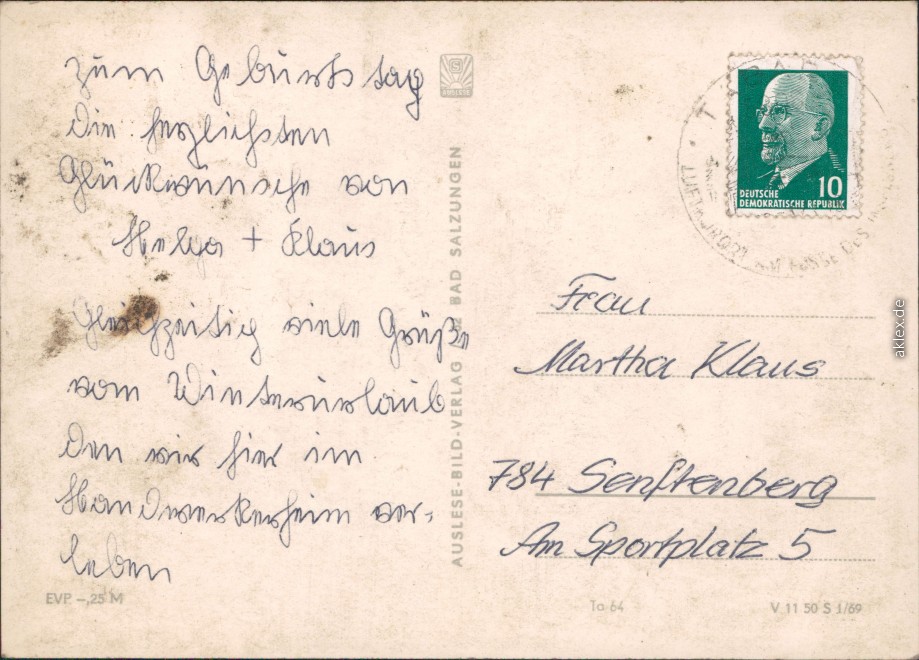 zum Geburtstag
die herzlichsten
Glückwünsche von
Helga + Klaus
Gleichzeitig viele Grüße
vom Winterurlaub
den wir hier im
Handwerkerheim ver-
leben
EVP -,25 M
AUSLESE-BILD-VERLAG BAD SALZUNGEN
DEUTSCHE
DEMOKRATISCHE REPUBLIK
10
Frau
Martha Klaus
784 Senftenberg
Am Sportplatz 5
To 64
V 11 50 S 1/69
aklex.de